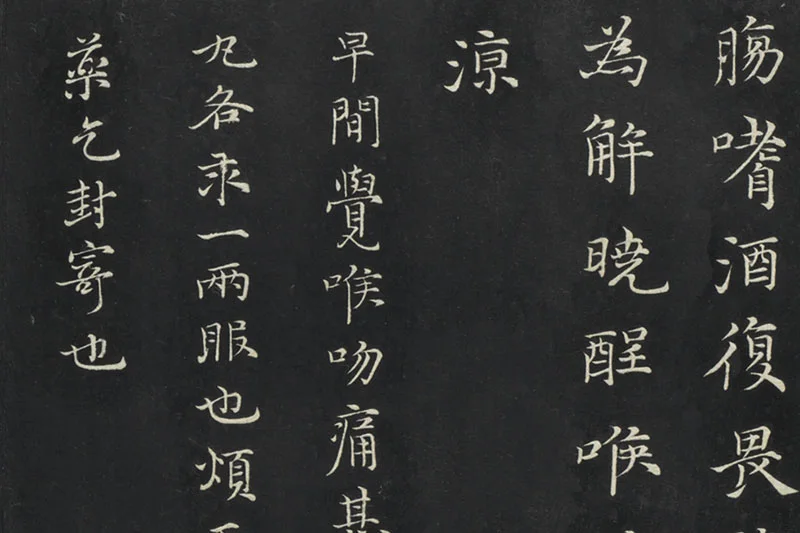 腸嗜酒復畏
為解曉酲喉
涼
早間覺喉吻痛甚
丸各求一兩服也煩
藥乞封寄也